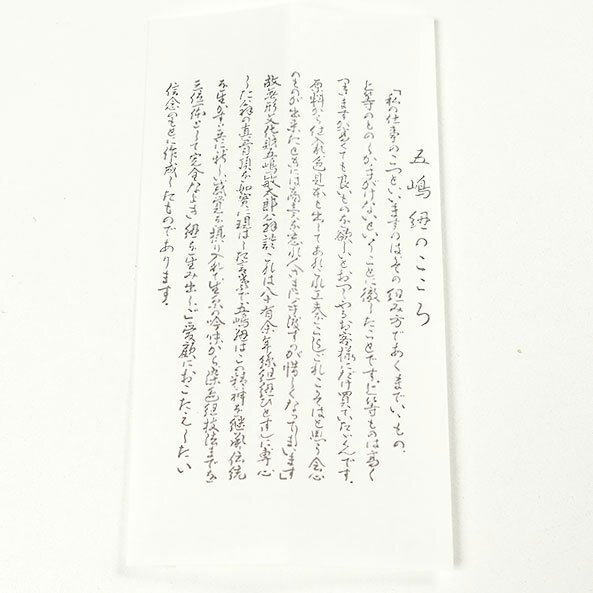 五嶋紐のこころ
「私の仕事のこつといいますのは、その組み方であくまでいいもの、
上等のものしか手がけないということに徹したことです。上等ものは高く
つきますが高くても良いものを欲しいとおっしゃるお客様にだけ買っていたゞくんです。
原料から仕入れ色見本も出してあれこれ工夫しこれこそはと思う会心
のものが出来たときには商売を忘れ人手に渡すのが惜しくなってしまいます」
故無形文化財五嶋敏太郎翁談これは八十有余年絲組紐ひとすじに専心
した翁の真骨頂を如実に現はした言葉で五嶋紐はこの精神を継承伝統
を生かす共に新しい感覚を摂り入れ生糸の吟味から染色組技法までを
三位一体として完全なよき紐を生み出しご愛顧におこたえしたい
信念のもとに作成したものであります。